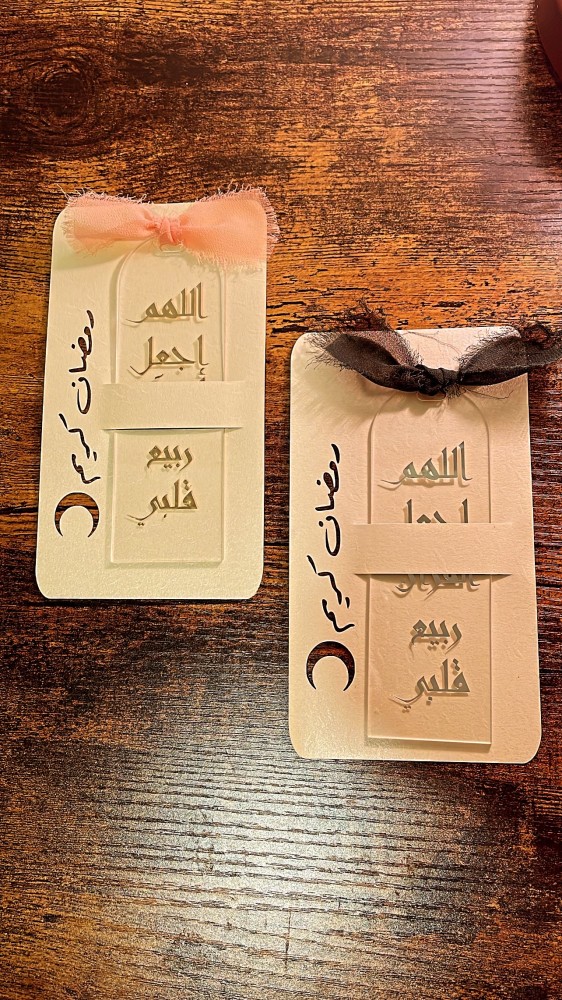 رمضان كريم
اللهم
إجعل
ربيع
قلبي
رمضان كريم
اللهم
إجعل
القرآن
ربيع
قلبي